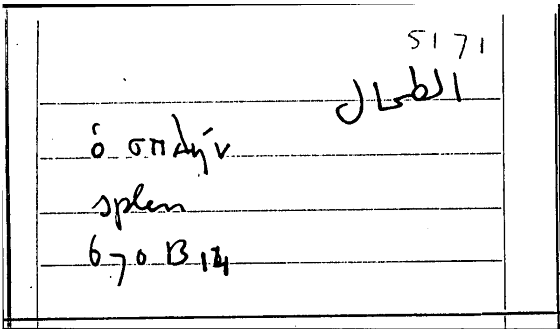 5171
الطحال
ὁ σπλήν
splen
670 B 14